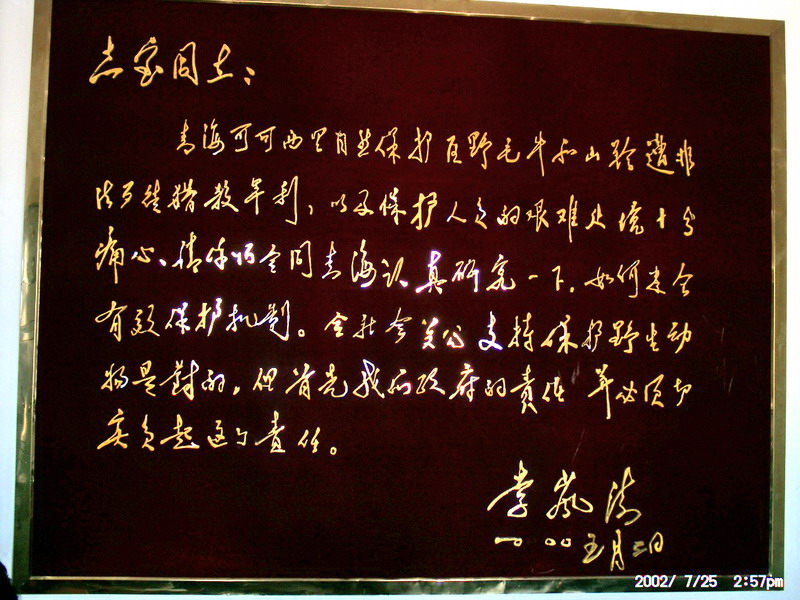 志宝同志：
青海可可西里自然保护区野毛牛和山羚遭非
法 猎杀牟利，以及保护人员的艰难处境十分
痛心、请你 会同青海认真研究一下，如何建全
有效保护机制。全社会关心支持保护野生动
物是對的，但首先我们政府的责任 并必须切
实负起这个责任。
李岚清
二〇〇〇五月三日
2002/ 7/25 2:57pm